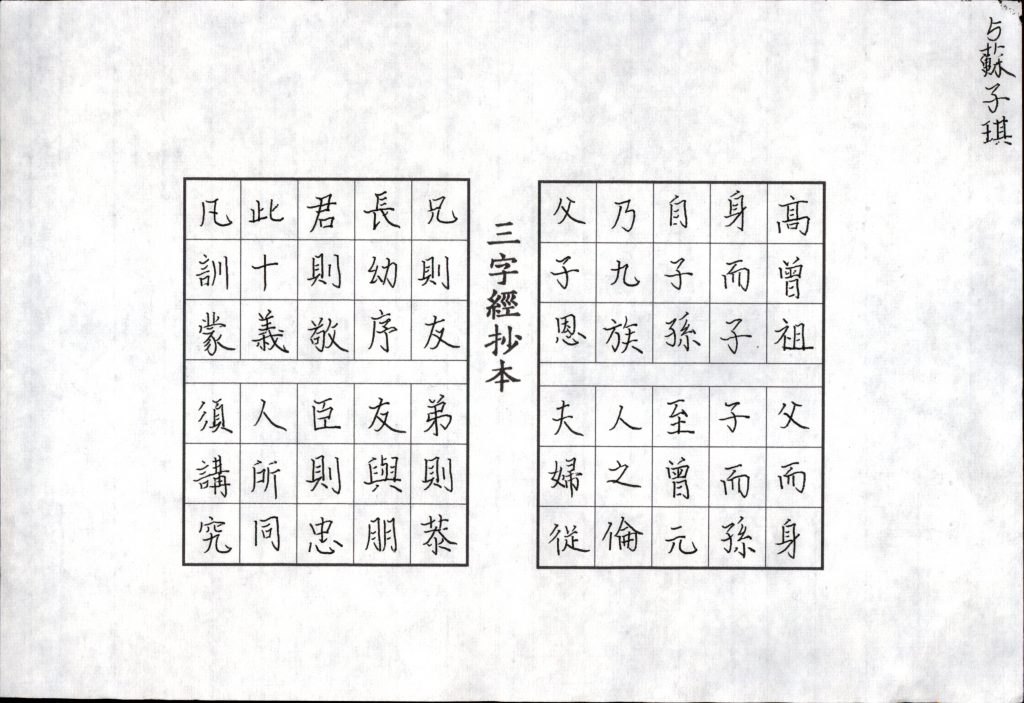 5蘇子琪
高曾祖
父而身
身而子
子而孫
自子孫
至曾元
乃九族
人之倫
父子恩
夫婦從
三字經抄本
兄則友
弟則恭
長幼序
友與朋
君則敬
臣則忠
此十義
人所同
凡訓蒙
須講究